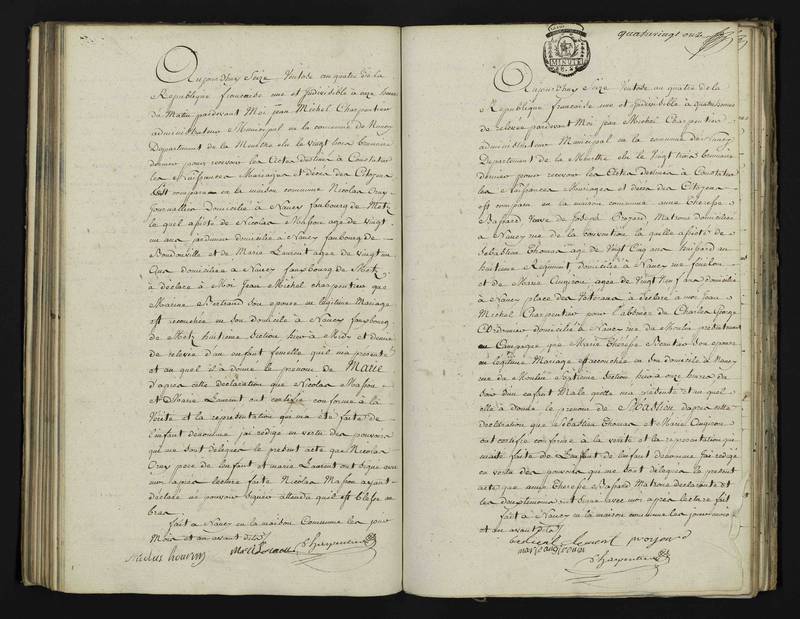 Aujourd'huy Seize Ventose an quatre de la
Republique francaise une et Indivisible à onze heures
du Matin pardevant Moi jean Michel Charpentier
administrateur Municipal de la commune de Nancy
Departement de la Meurthe elu le vingt trois brumaire
dernier pour recevoir les Actes destinés à Constater
les Naissances Mariages et décès des Citoyens
Est comparu en la maison commune Nicolas
Journallier Domicilié à Nancy faubourg de Metz
le quel assisté de Nicolas Masson agé de vingt
un ans jardinier domicilié à Nancy faubourg de
Boudonville et de Marie Laurent agée de vingt un
Ans domiciliée à Nancy fauxbourg de Metz
à déclaré à Moi Jean Michel charpentier que
Marie Bertrand son epouse en légitime Mariage
est accouchée en son domicile à Nancy fauxbourg
de Metz huitieme Section hier à Midy et demie
de relevée d'un enfant femelle quil ma présenté
et au quel il à donné le prénom de Marie
D'après cette déclaration que Nicolas Masson
et Marie Laurent ont certifié conforme à la
Vérité et la représentation qui ma été faite de
L'enfant denommé jai rédigé en vertu des pouvoirs
qui me sont délégués le présent acte que Nicolas
père de lenfant et marie Laurent ont signé avec
moi après lecture faite Nicolas Masson ayant
déclaré ne pouvoir signer attendu quil est blessé au
bras
fait à Nancy en la maison Commune les jour
Mois et an avant dits
Charpentier
quatrevingt onze
MINUTE
Aujourd'huy Seize Ventose an quatre de la
Republique francaise une et Indivisible à quatre heures
de relevée pardevant Moi jean Michel Charpentier
administrateur Municipal de la commune de Nancy
Departement de la Meurthe elu le Vingt trois brumaire
dernier pour recevoir les Actes destinés à Constater
les Naissances Mariages et décès des Citoyens
est comparu en la maison commune anne Thérèse
Bassard Veuve de Joseph Matrone domiciliée
à Nancy rue de la convention la quelle assistée de
Sébastien Thomas agé de Vingt Cinq ans hussard au
huitieme Régiment domicilié à Nancy rue fénélon
et de Marie agée de Vingt Neuf ans domiciliée
à Nancy place des Vétérans à déclaré a moi jean
Michel Charpentier pour l'absence de Charles George
Cordonnier domicilié à Nancy rue du Moulin présentement
en Campagne que Marie Thérèse son epouse
en légitime Mariage est accouchée en son domicile à Nancy
rue du Moulin Septieme Section hier à onze heures du
Soir D'un enfant Male quelle ma présenté et au quel
elle à donné le prénom de Sébastien d'après cette
déclaration que Sébastien Thomas et Marie
ont certifié conforme à la vérité et la représentation qui
ma été faite de Lenfant denommé Jai rédigé
en vertu des pouvoirs qui me sont délégués le présent
acte que anne Thérèse Bassard Matrone déclarante et
les deux témoins ont signé avec moi après lecture fait
fait à Nancy en la maison commune les jour mois
et an avant dits
Charpentier